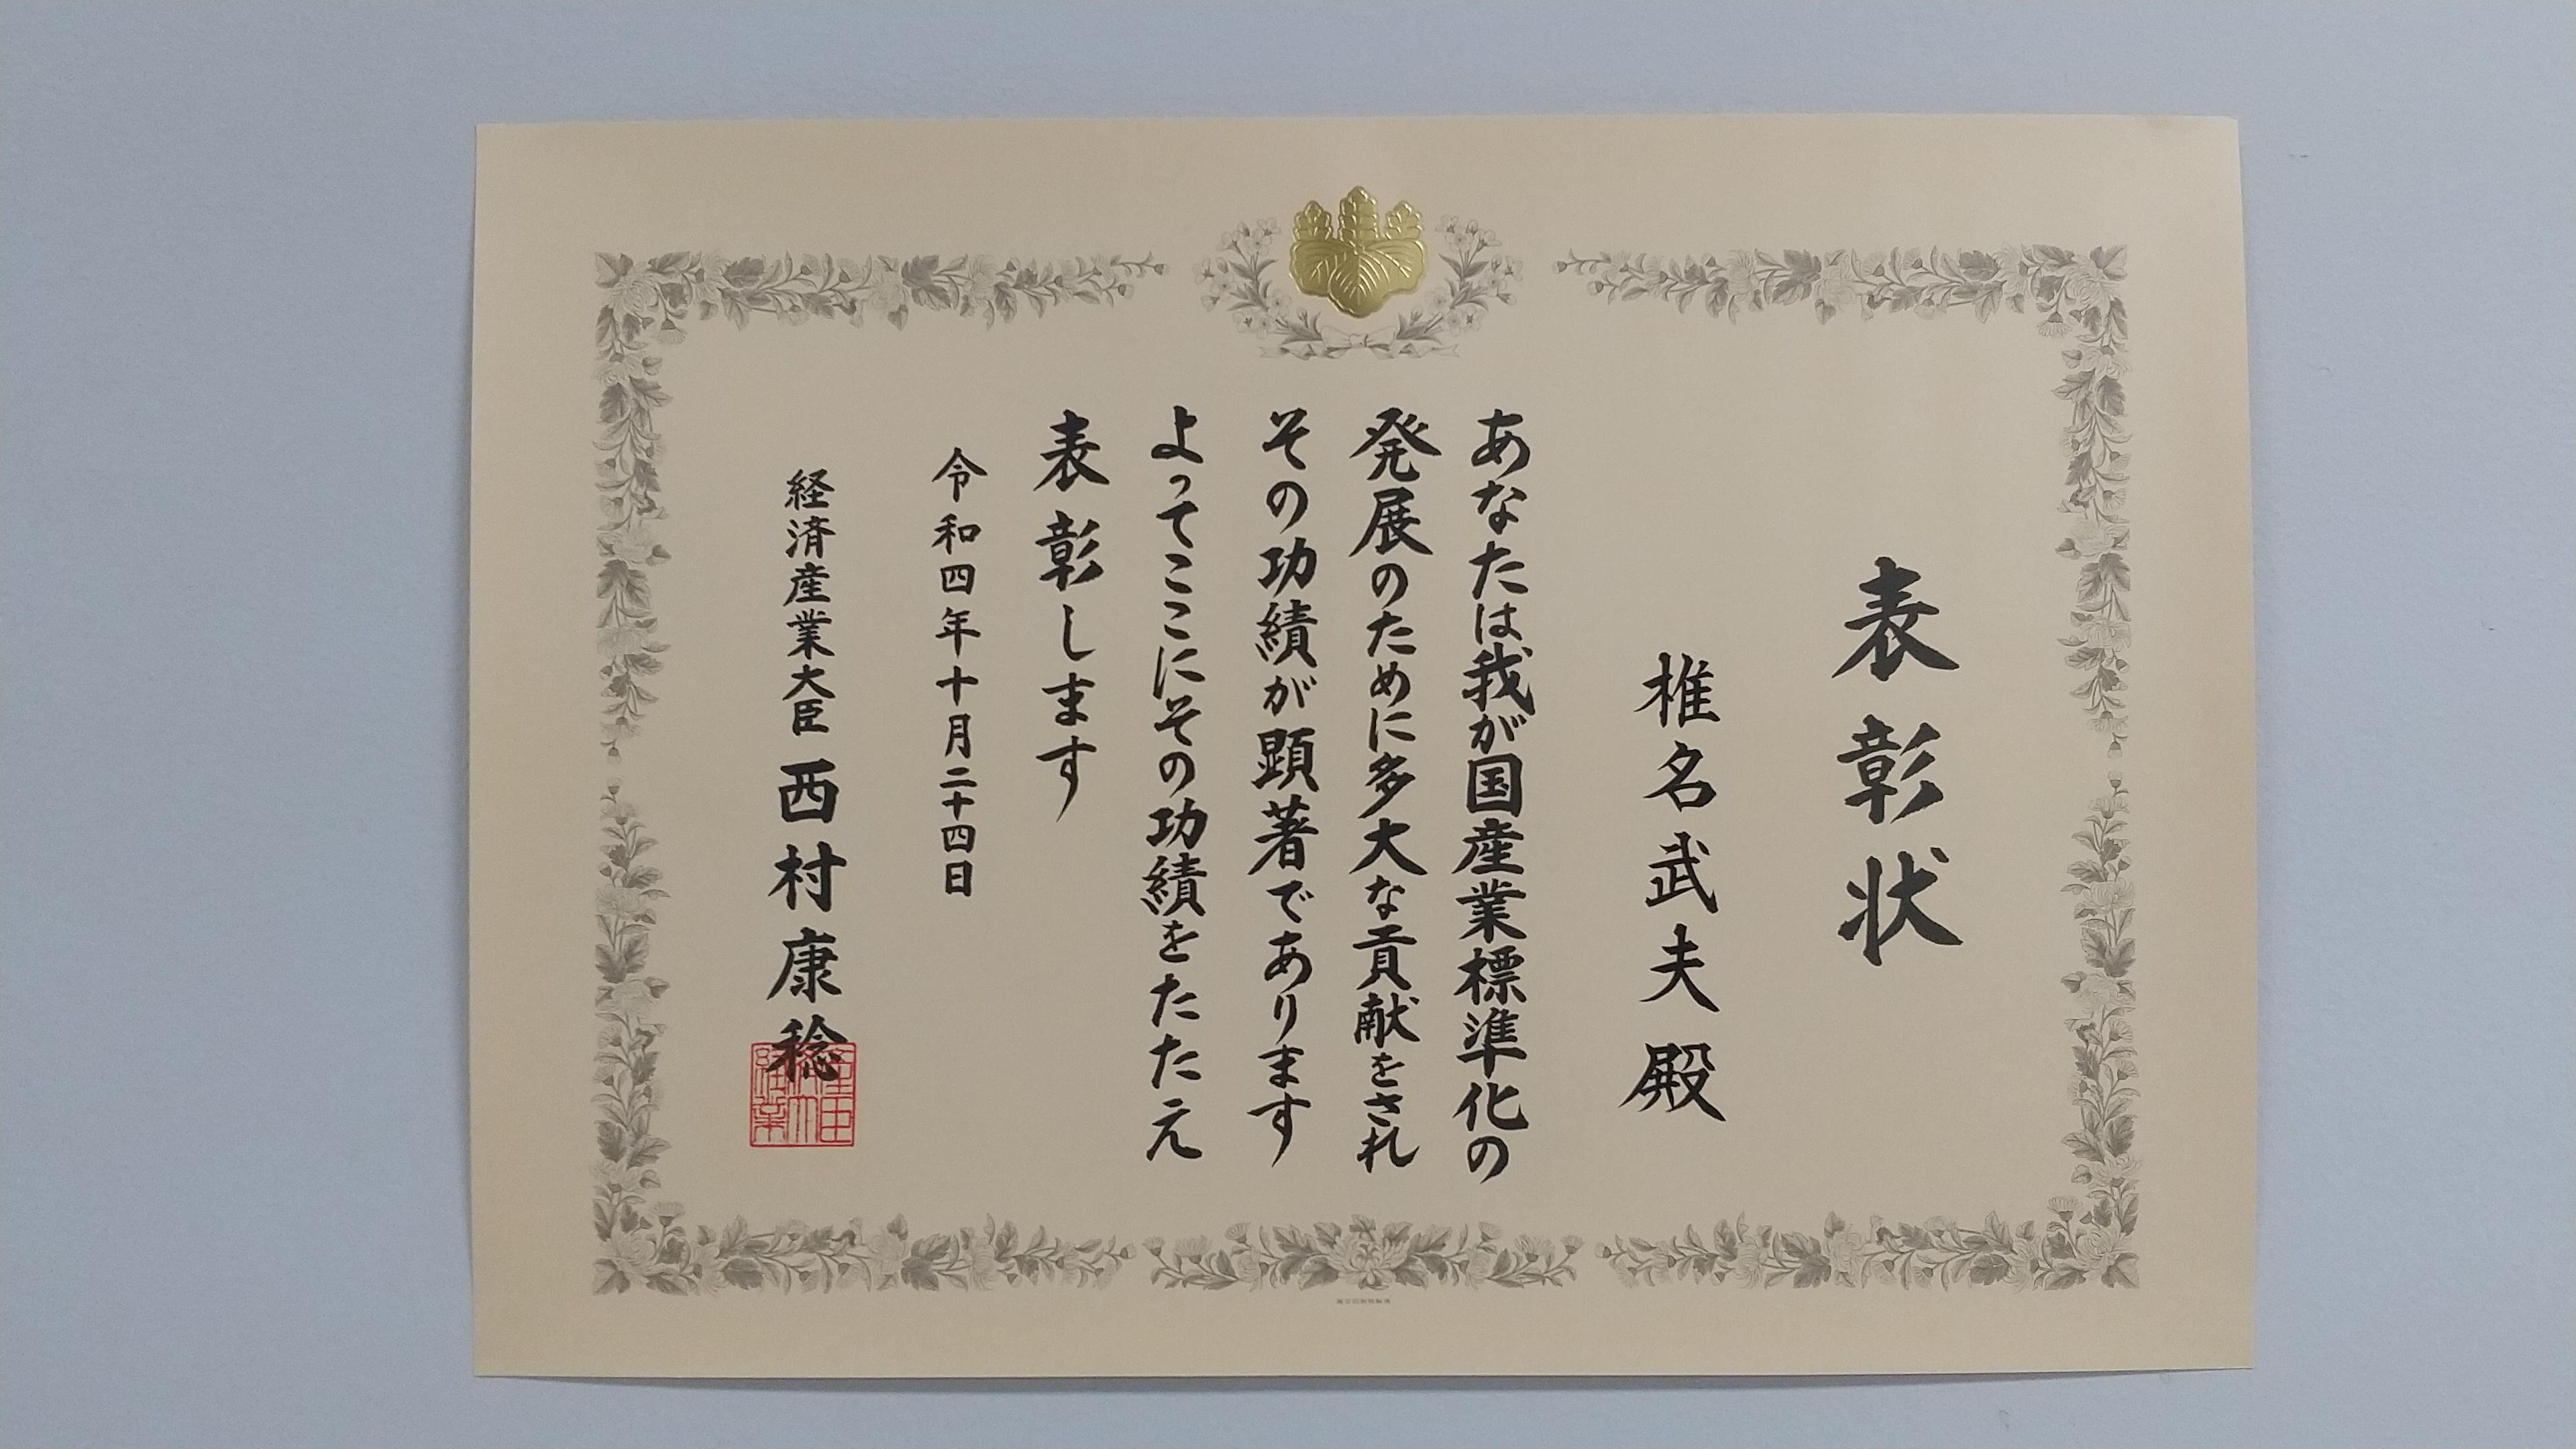 表彰状
椎名武夫殿
あなたは我が国産業標準化の
発展のために多大な貢献をされ
その功績が顕著であります
よってここにその功績をたたえ
表彰します
令和四年十月二十四日
経済産業大臣 西村康稔